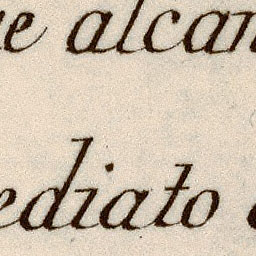 e alcan
ediato